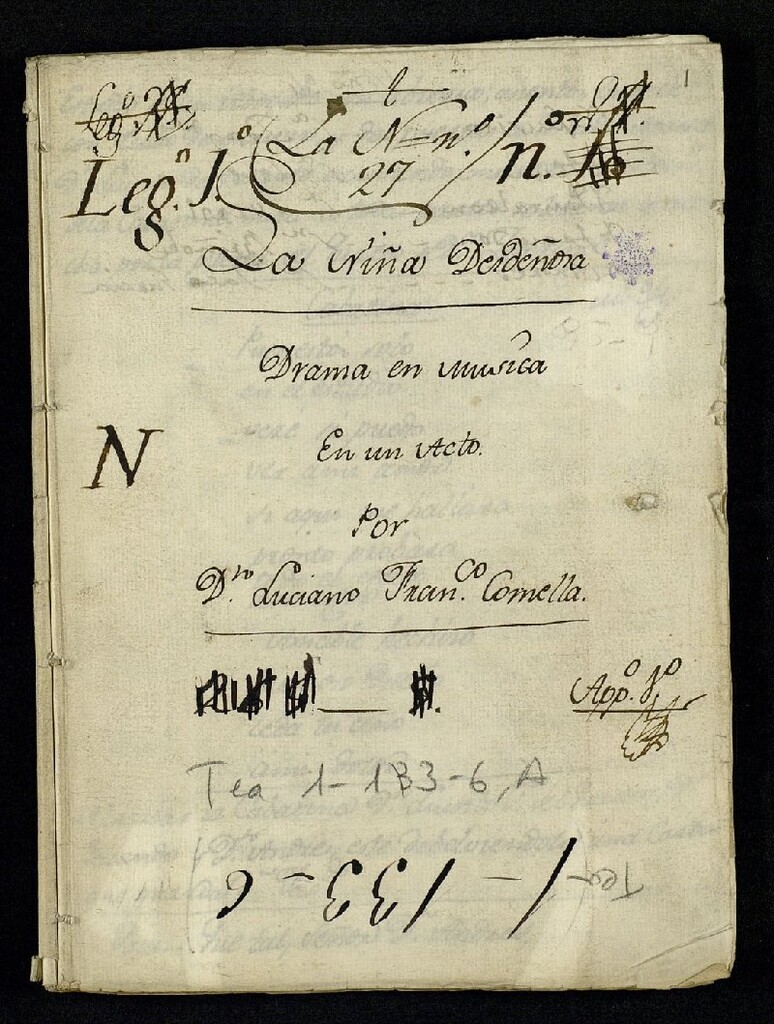 1
Leg.º 1.º La N n.º n.
27
La Niña Desdeñosa
Drama en Musica
N
En un Acto.
Por
D.ⁿ Luciano Fran.ᶜᵒ Comella.
App.º 1º
Tea 1-133-6, A
Tea 1-133-6